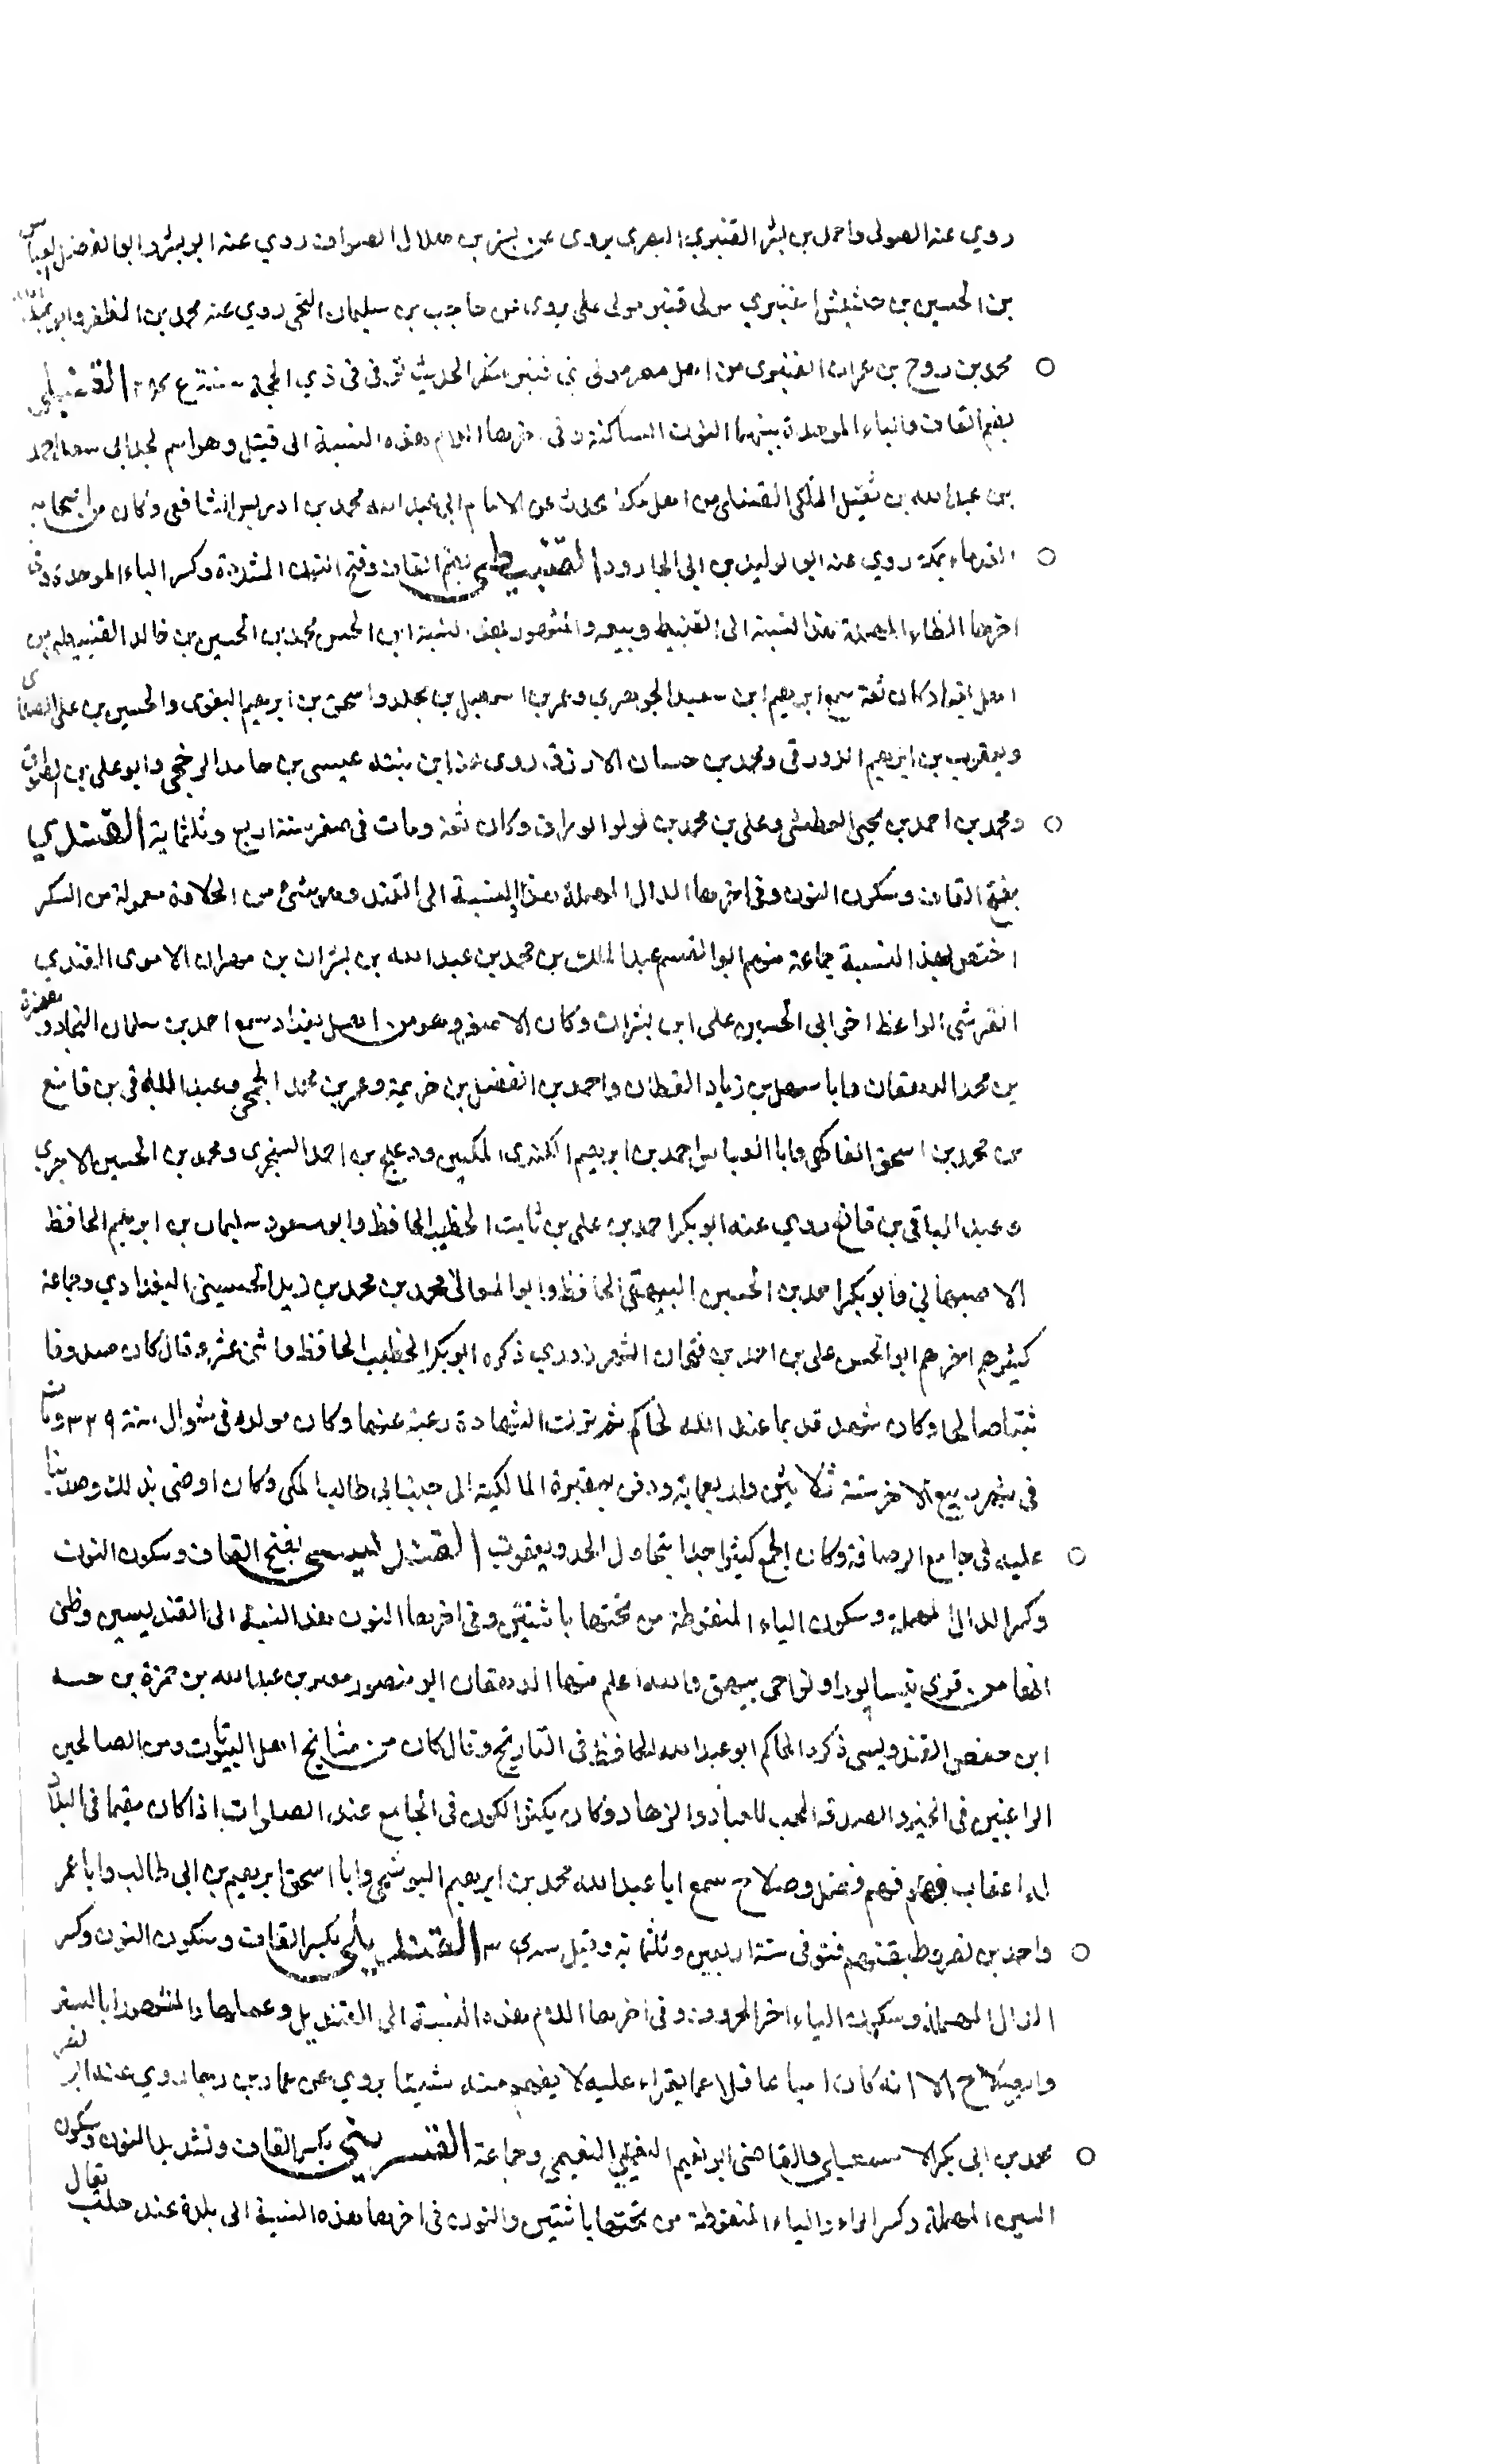 روي عنه الصولى واحمد بن بشر القنبري البصرى يروى عن بشر بن هلال الصواف روي عنه ابو بشر وابو الفضل العباس
بن الحسين بن القنبري مولى قنبر مولى على يروى عن حاجب بن سليمان روي عنه محمد بن المظفر
محمد بن روح بن عمران القنبرى من اهل مصر مولى بني قنبر منكر الحديث توفى فى ذي الحجة سنة القنبلى
بضم القاف والباء الموحدة بينهما النون الساكنة وفى اخرها اللام هذه النسبة الى قنبل وهو اسم لجد ابى سعد احمد
بن عبد الله بن قنبل المكى القنبلى من اهل مكة يحدث عن الامام ابى عبد الله محمد بن ادريس الشافعى وكان من اصحابه
القدماء بمكة روي عنه ابو الوليد بن ابى الجارود القنبيطى بضم القاف وفتح النون المشددة وكسر الباء الموحدة وفى
اخرها الطاء المهملة هذا النسبة الى القنبيط وبيعه والمشهور بهذه النسبة ابن الحسن محمد بن الحسين بن خالد القنبيطى من
اهل بغداد كان ثقة سمع ابرهيم ابن سعيد الجوهري وعمر بن اسمعيل بن مجلد واسحق بن ابرهيم البغوى والحسين بن على الصدائى
ويعقوب بن ابرهيم الدورقى ومحمد بن حسان الازرق روى عنه ابن بنته عيسى بن حامد الرخجى وابو على بن الصواف
ومحمد بن احمد بن يحيى العطشى وعلى بن محمد بن لولوا الوراق وكان ثقة ومات فى صفر سنة اربع وثلثماية القندي
بفتح القاف وسكون النون وفى اخرها الدال المهملة هذا النسبة الى القند وهى شئ من الحلاوة معمولة من السكر
اختص بهذا النسبة جماعة منهم ابو القسم عبد الملك بن محمد بن عبد الله بن بشران بن مهران الاموى القندي
القرشى الواعظ اخى ابى الحسين على ابن بشران وكان الاصغر وهو من اهل بغداد سمع احمد بن سلمان النجاد وحمزة
بن محمد الدهقان وابا سهل بن زياد القطان واحمد بن الفضل بن خزيمة وعمر بن محمد الجمحى وعبد الباقى بن قانع
بن محمد بن اسحق الفاكهى وابا العباس احمد بن ابرهيم الكندى المكيين ودعلج بن احمد السنجرى ومحمد بن الحسين الاجرى
وعبد الباقى بن قانع روي عنه ابو بكر احمد بن على بن ثابت الخطيب الحافظ وابو مسعود سليمان بن ابرهيم الحافظ
الاصبهانى وابو بكر احمد بن الحسين البيهقى الحافظ وابو المعالى محمد بن محمد بن زيد الحسينى البغدادي وجماعة
كثيرهم اخرهم ابو الحسن على بن احمد بن فتحان الشهرزوري ذكره ابو بكر الخطيب الحافظ واثنى عليه وقال كان صدوقا
ثبتا صالحا وكان شهد قديما عند الحاكم ثم ترك الشهادة رغبة عنها وكان مولده فى شوال سنة ٣٣٩ ومات
فى شهر ربيع الاخر سنة ثلاثين واربعماية ودفن بمقبرة المالكية الى جنب ابى طالب المكى وكان اوصى بذلك وصلينا
عليه فى جامع الرصافة وكان الجمع كثيرا جدا يتجاوز الحد ويفوت القندليسى بفتح القاف وسكون النون
وكسر الدال المهملة وسكون الياء المنقوطة من تحتها باثنتين وفى اخرها النون هذه النسبة الى القنديسين وظنى
انها من قرى نيسابور او نواحى بيهق والله اعلم منها الدهقان ابو منصور بن عبد الله بن حمزة بن
ابن حفص ذكره الحاكم ابو عبد الله الحافظ فى التاريخ وقال كان من مشايخ اهل البيوتات ومن الصالحين
الراغبين فى الخير والصدقة المحب للعباد والزهاد وكان يكثر الكون فى الجامع عند الصلوات اذا كان مقيما فى البلاد
له اعقاب فيهم فضل وصلاح سمع ابا عبد الله محمد بن ابرهيم البوشنجى وابا اسحق ابرهيم بن ابى طالب وابا عمر
واحمد بن نصر وطبقتهم فتوفى سنة اربعين وثلثماية وقيل القنديلى بكسر القاف وسكون النون وكسر
الدال المهملة وسكون الياء اخر الحروف وفى اخرها اللام هذه النسبة الى القنديل وعملها والمشهور
الا انه كان اميا غافلا عما يقراء عليه لا يفهم منه شيئا يروي عن عمار بن رجا روي عنه ابو نصر
محمد بن ابى بكر الاسمعيلى والقاضى ابو نعيم النعيمى وجماعة القنسرينى بكسر القاف وتشديد النون وسكون
السين المهملة وكسر الراء والياء المنقوطة من تحتها باثنتين والنون فى اخرها هذه النسبة الى بلدة عند حلب يقال